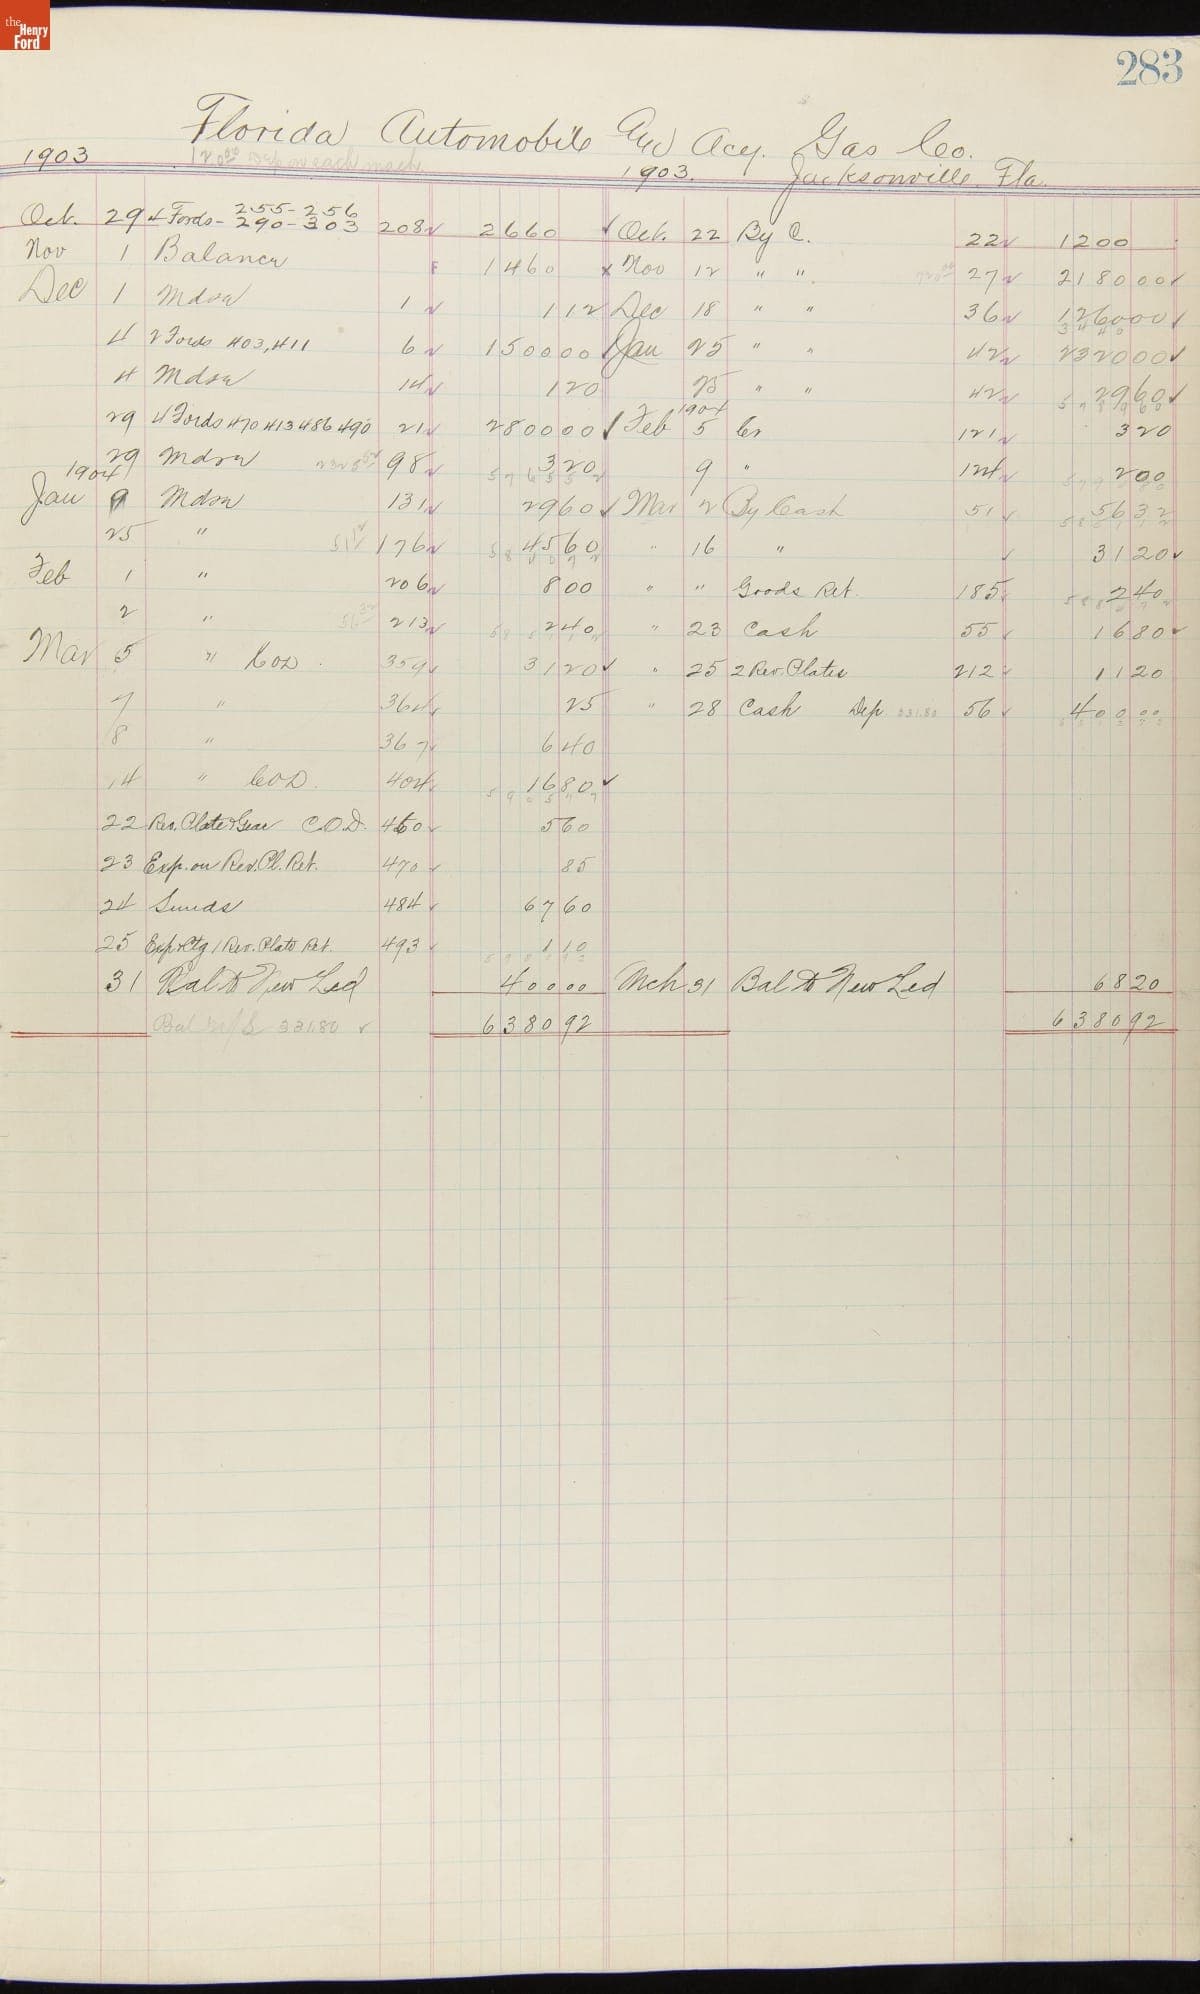 the Henry Ford
283
Florida Automobile and Acy. Gas Co.
1903 1903. Jacksonville, Fla.
Oct. 29 4 Fords - 255-256 290-303 208 2660 Oct. 22 By C. 22 1200
Nov 1 Balance F 1460 x Nov 12 " " 27 218000
Dec 1 Mdse 1 112 Dec 18 " " 36 126000
4 2 Fords 403, 411 6 150000 Jan 25 " " 42 232000
4 Mdse 14 120 25 " " 42 2960
29 4 Fords 470 413 486 490 21 280000 Feb 1904 5 Cr 121 320
29 Mdse 98 320 9 " 124 200
1904
Jan 9 Mdse 131 2960 Mar 2 By Cash 51 5632
25 " 176 4560 " 16 " 3120
Feb 1 " 206 800 " " Goods Ret. 185 240
2 " 213 240 " 23 Cash 55 1680
Mar 5 " COD. 359 3120 " 25 2 Rev. Plates 212 1120
7 " 364 25 " 28 Cash Dep 331.80 56 40000
8 " 367 640
14 " COD. 404 1680
22 Rev. Plate & Gear C.O.D. 460 560
23 Exp. on Rev. Pl. Ret. 470 85
24 Sunds 484 6760
25 Exp & Ctg 1 Rev. Plate Ret. 493 110
31 Bal to New Led 40000 Mch 31 Bal to New Led 6820
331.80 638092 638092